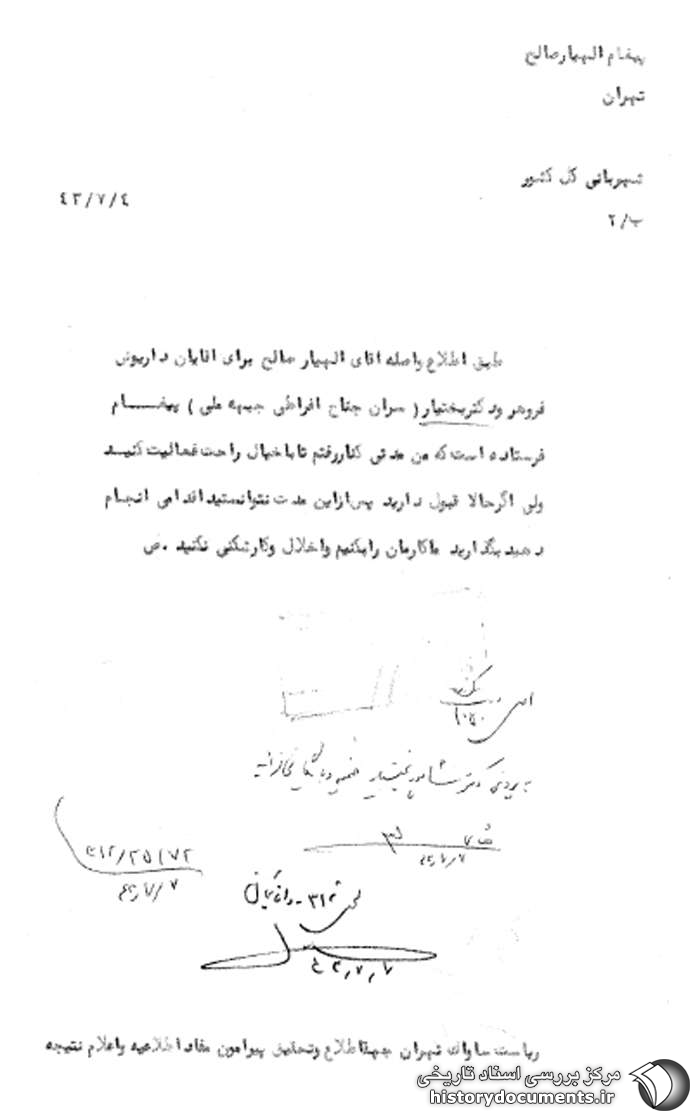 پیغام الهیار صالح
تهران
شهربانی کل کشور
۴۳/۷/۴
ب/۲
طبق اطلاع واصله اقای الهیار صالح برای اقایان داریوش
فروهر ودکتربختیار ( سران جناح افراطی جبهه ملی ) پیغـــام
فرستاده است که من مدتی کناررفتم تاباخیال راحت فعالیت کنیـد
ولی اگرحالا قبول دارید پس ازاین مدت نتوانستید اقدامی انجام
دهید بگذارید ماکارمان رابکنیم واخلال وکارشکنی نکنید .ص
به پرونده دکتر شاپور بختیار ضمیمه و بایگانی
۳۱۲/۲۵۱۷۲
۴۳/۷/۷
۳۱۲
۴۳/۷/۷
ریاست ساواک تهران جهت اطلاع وتحقیق پیرامون مفاد اطلاعیه واعلام نتیجه
مرکز بررسی اسناد تاریخی
historydocuments.ir